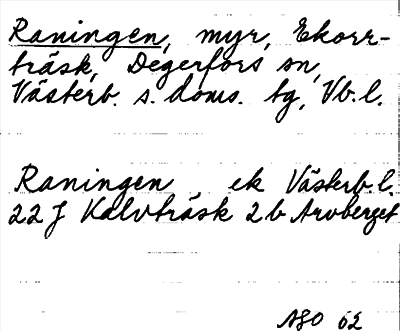 Raningen, myr, Ekorr-
träsk, Degerfors sn,
Västerb. s. doms. tg, Vb. l.
Raningen ek Västerb. l.
22 J Kalvträsk 2 b Arvberget
ASO 62